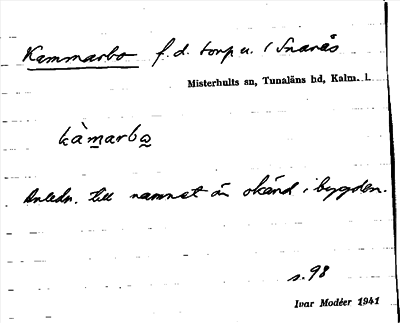 Kammarbo f.d. torp u. Snarås
Misterhults sn, Tunaläns hd, Kalm. L
kàmarbo
Anledn. till namnet är okänd i bygden.
s.98
Ivar Modéer 1941